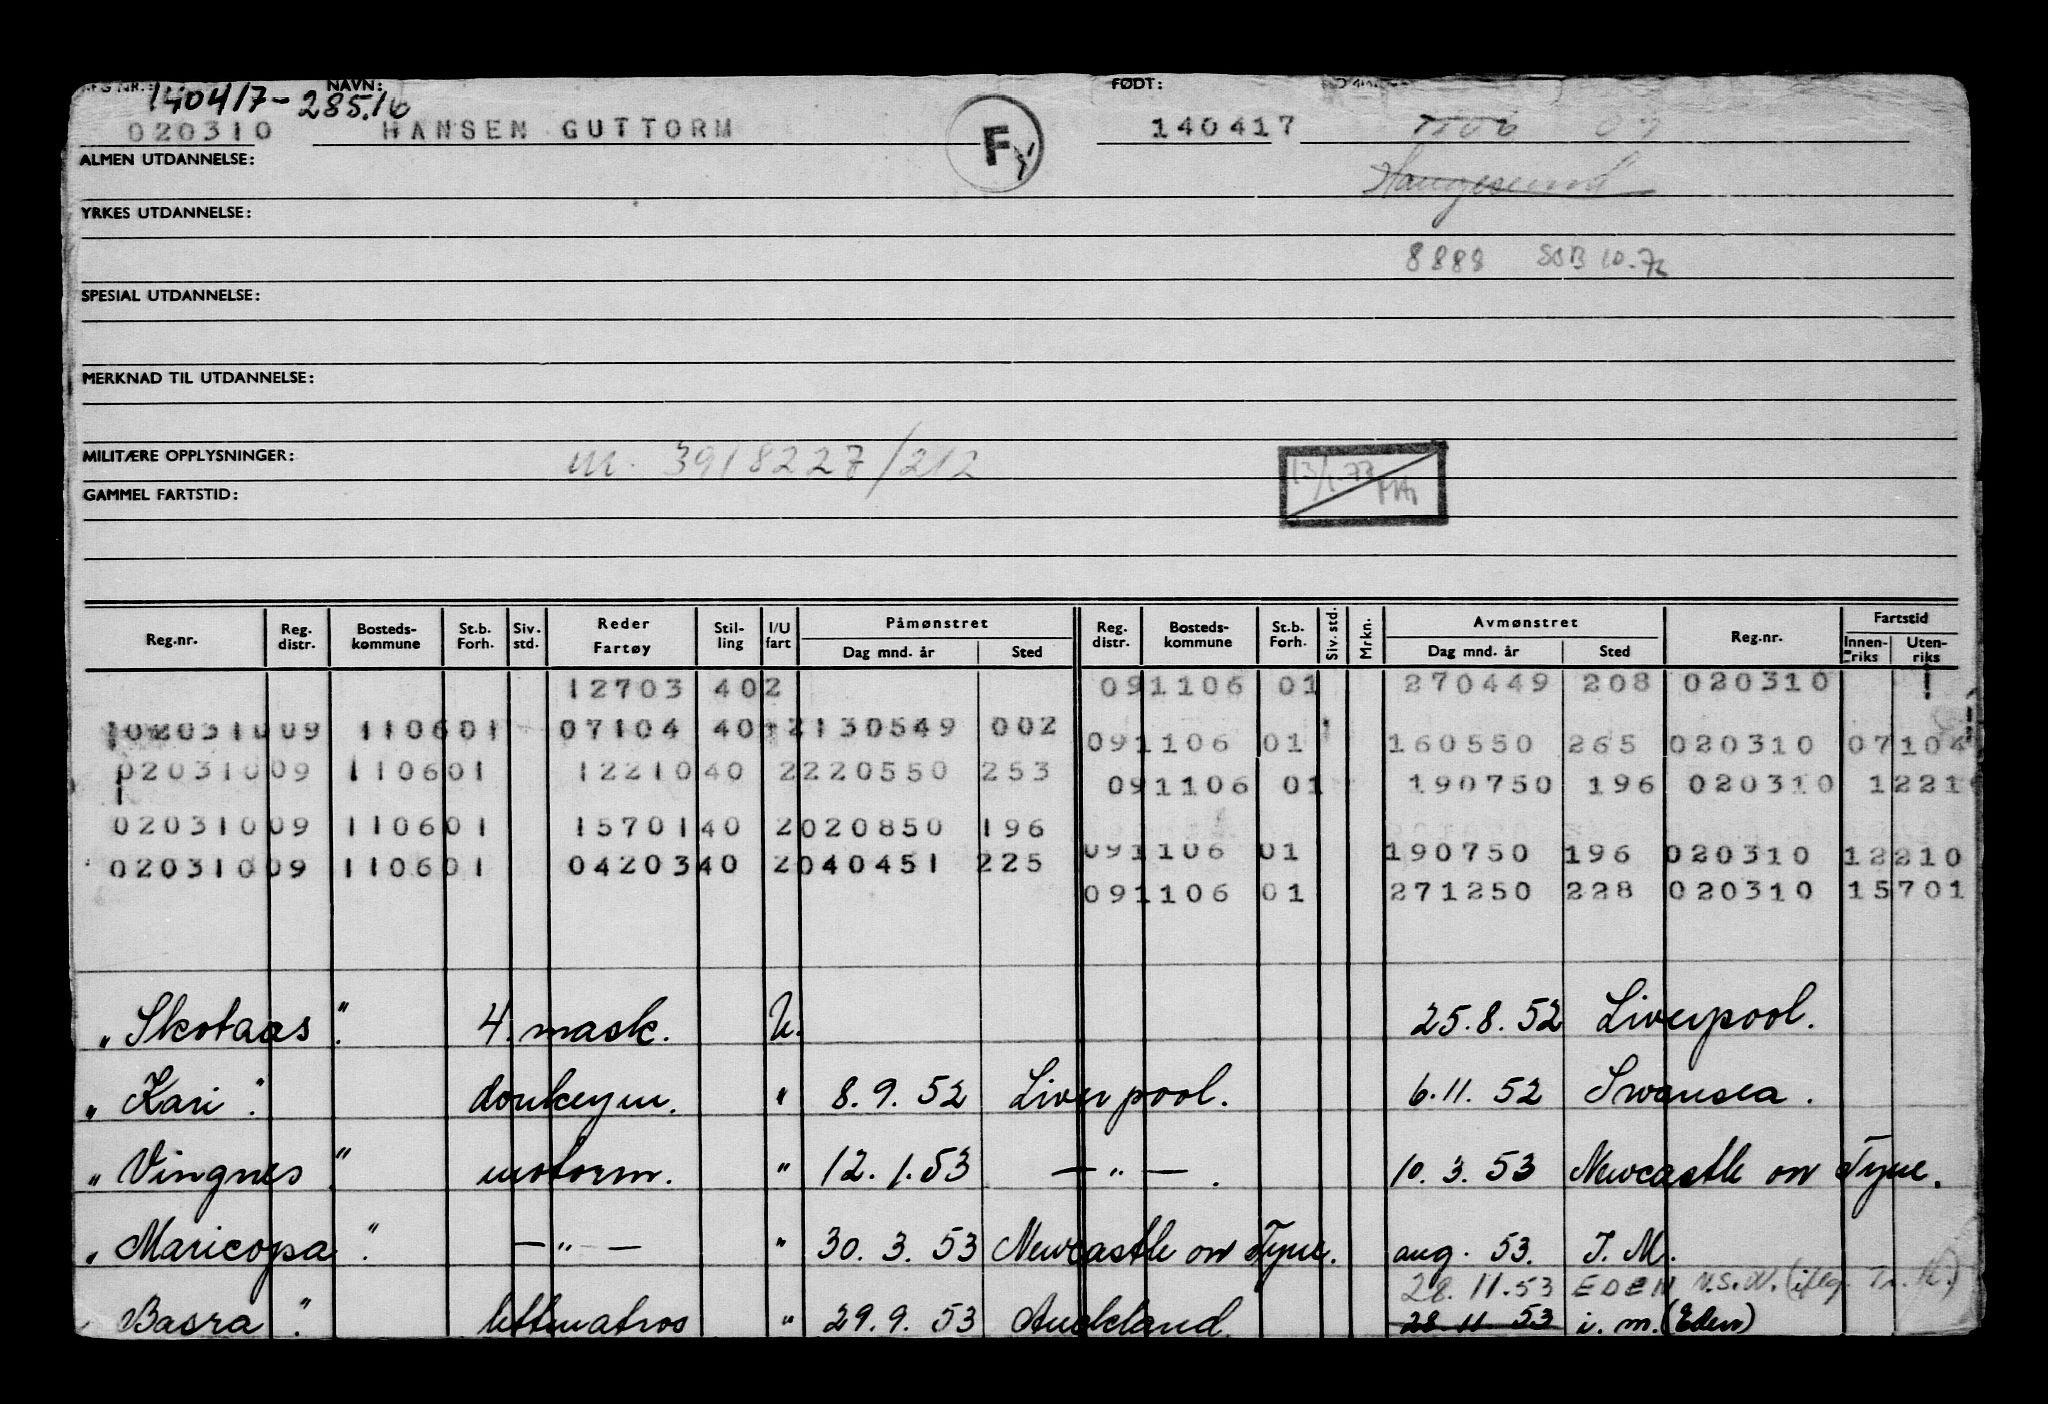 140417-285.16
NAVN: FØDT:
020310 HANSEN GUTTORM F 140417
ALMEN UTDANNELSE: Haugesund
YRKES UTDANNELSE:
8888 SSB 10.72
SPESIAL UTDANNELSE:
MERKNAD TIL UTDANNELSE:
MILITÆRE OPPLYSNINGER: m. 3918227/212 13/1.73
GAMMEL FARTSTID:
Reg.nr. Reg. distr. Bosteds- kommune St.b. Forh. Siv. std. Reder Fartøy Stil- ling I/U fart Påmønstret Dag mnd. år Sted Reg. distr. Bosteds- kommune St.b. Forh. Siv. std. Mrkn. Avmønstret Dag mnd. år Sted Reg.nr. Fartstid Innen- riks Uten- riks
12703 402 091106 01 270449 208 020310
020310 09 110601 07104 40 2130549 002
091106 01 160550 265 020310 07104
020310 09 110601 12210 40 2220550 253
091106 01 190750 196 020310 1221
020310 09 110601 15701 40 2020850 196
091106 01 190750 196 020310 12210
020310 09 110601 04203 40 2040451 225
091106 01 271250 228 020310 15701
„Skotaas". 4. mask. U. 25.8.52 Liverpool.
„Kari". donkeym. " 8.9.52 Liverpool. 6.11.52 Swansea.
„Vingnes". motorm. " 12.1.53 —"—. 10.3.53 Newcastle on Tyne.
„Maricopa". —"— " 30.3.53 Newcastle on Tyne. aug. 53. I. M.
28.11.53 EDEN N.S.W. (iflg. Tr.K.)
„Basra". lettmatros " 29.9.53 Auckland 28.11.53 i. m. (Eden)